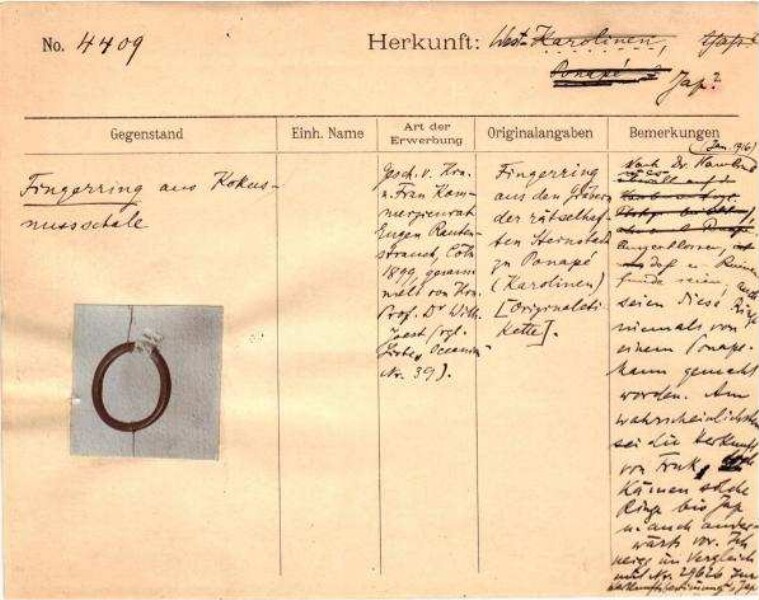 No. 4409
Herkunft: West-Karolinen, Jap?
Ponapé? Jap?
Gegenstand
Einh. Name
Art der
Erwerbung
Originalangaben
Bemerkungen
Fingerring aus Kokus-
nussschale
Gesch. v. Hrn.
u. Frau Kom-
merzienrat
Eugen Rauten-
strauch, Cöln
1899, gesam
melt von Hrn.
Prof. Dr Wilh.
Joest (vgl.
Oceanien
Nr. 39).
Fingerring
aus den Gräbern
der rätselhaf-
ten Steinstadt
zu Ponapé
(Karolinen)
[Originaleti-
kette].
(Jan. 1916)
Nach Dr.
ausgeschlossen,
daß es Ruinen
funde seien, auch
seien diese Ringe
niemals von
einem Ponape-
mann gemacht
worden. Am
wahrscheinlichsten
sei die Herkunft
von Truk,
kämen solche
Ringe bis Jap
u. auch ander-
wärts vor. Ich
neige im Vergleich
mit Nr. 29626 zur
Herkunftsbestimmung Jap